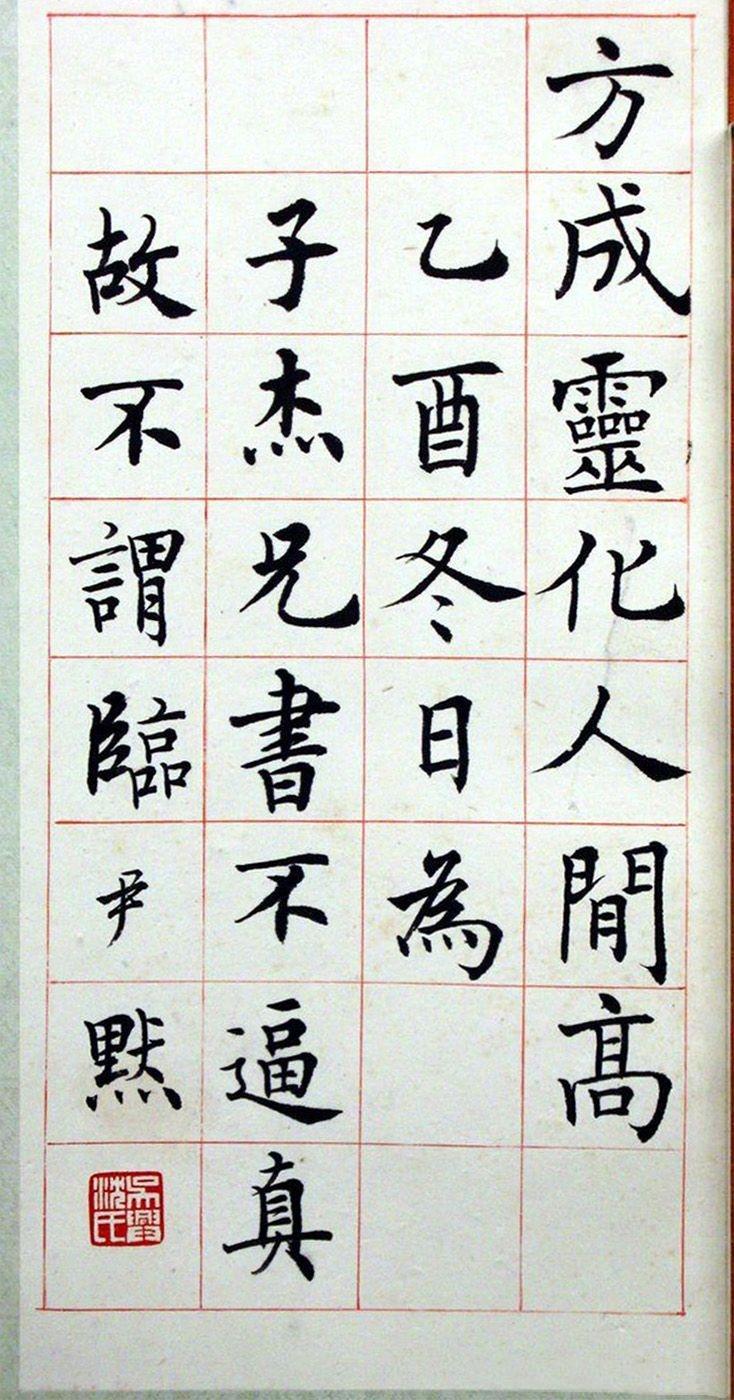 方成靈化人閒高
乙酉冬日為
子杰兄書不逼真
故不謂臨尹默
吳興沈氏